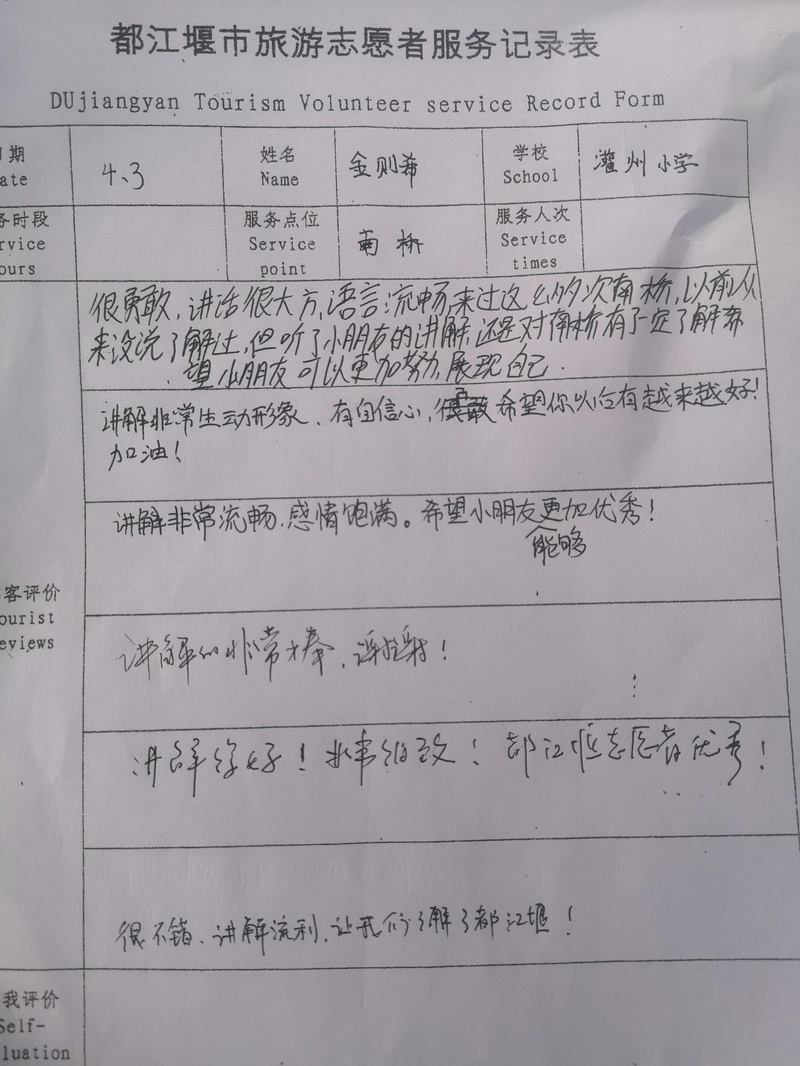 都江堰市旅游志愿者服务记录表
DUjiangyan Tourism Volunteer service Record Form
期 4、3 姓名 金则希 学校 灌州小学
ate Name School
务时段 服务点位 南桥 服务人次
rvice Service Service
ours point times
很勇敢,讲话很大方,语言流畅,来过这么多次南桥,以前从
来没说了解过,但听了小朋友的讲解,还是对南桥有了一定了解希
望小朋友可以更加努力,展现自己.
讲解非常生动形象、有自信心,勇敢希望你以后有越来越好!
加油!
讲解非常流畅、感情饱满。希望小朋友更加优秀!
能够
客评价
ourist
eviews
讲解的非常棒,谢谢!
讲解很好!非常细致!都江堰志愿者优秀!
很不错、讲解流利,让我们了解了都江堰!
我评价
Self-
luation